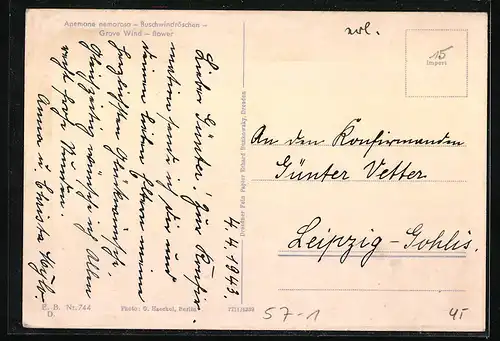 Anemone nemorosa – Buschwindröschen –
Grove Wind – flower
Lieber Günter! Zur Konfir-
mation sende ich dir und
deinen lieben Eltern meine
herzlichsten Glückwünsche.
Gleichzeitig wünsche ich Allen
recht frohe Stunden.
Anna u. Christa
4.4.1943.
E. B. Nr. 744
D.
Photo: G. Haeckel, Berlin
Dresdner Foto Papier Erhard Dresden
erl.
15
Import
An den Konfirmanden
Günter Vetter
Leipzig-Gohlis.
57-1